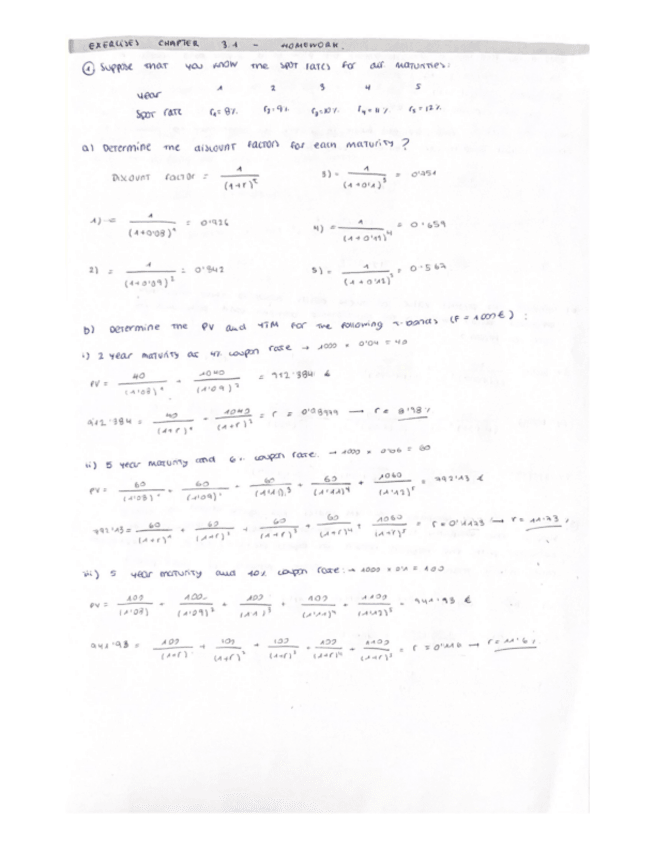 EXERCISES CHAPTER 3.1 - HOMEWORK.
① Suppose that you know the spot rates for all maturities:
year 1 2 3 4 5
Spot rate r₁=8% r₂=9% r₃=10% r₄=11% r₅=12%
a) Determine the discount factors for each maturity?
Discount factor = 1/(1+r)ᵗ 3) = 1/(1+0'1)³ = 0'751
1) = 1/(1+0'08)¹ = 0'926 4) = 1/(1+0'11)⁴ = 0'659
2) = 1/(1+0'09)² = 0'842 5) = 1/(1+0'12)⁵ = 0'567
b) Determine the PV and YTM for the following T-bonds (F = 1000€) :
i) 2 year maturity as 4% coupon rate → 1000 × 0'04 = 40
PV = 40/(1'08)¹ + 1040/(1'09)² = 912'384 €
912'384 = 40/(1+r)¹ + 1040/(1+r)² = r = 0'08979 → r = 8'98%
ii) 5 year maturity and 6% coupon rate. → 1000 × 0'06 = 60
PV = 60/(1'08)¹ + 60/(1'09)² + 60/(1'1)³ + 60/(1'11)⁴ + 1060/(1'12)⁵ = 792'13 €
792'13 = 60/(1+r)¹ + 60/(1+r)² + 60/(1+r)³ + 60/(1+r)⁴ + 1060/(1+r)⁵ = r = 0'1173 → r = 11'73%
iii) 5 year maturity and 10% coupon rate: → 1000 × 0'1 = 100
PV = 100/(1'08) + 100/(1'09)² + 100/(1'1)³ + 100/(1'11)⁴ + 1100/(1'12)⁵ = 941'93 €
941'93 = 100/(1+r) + 100/(1+r)² + 100/(1+r)³ + 100/(1+r)⁴ + 1100/(1+r)⁵ = r = 0'116 → r = 11'6%